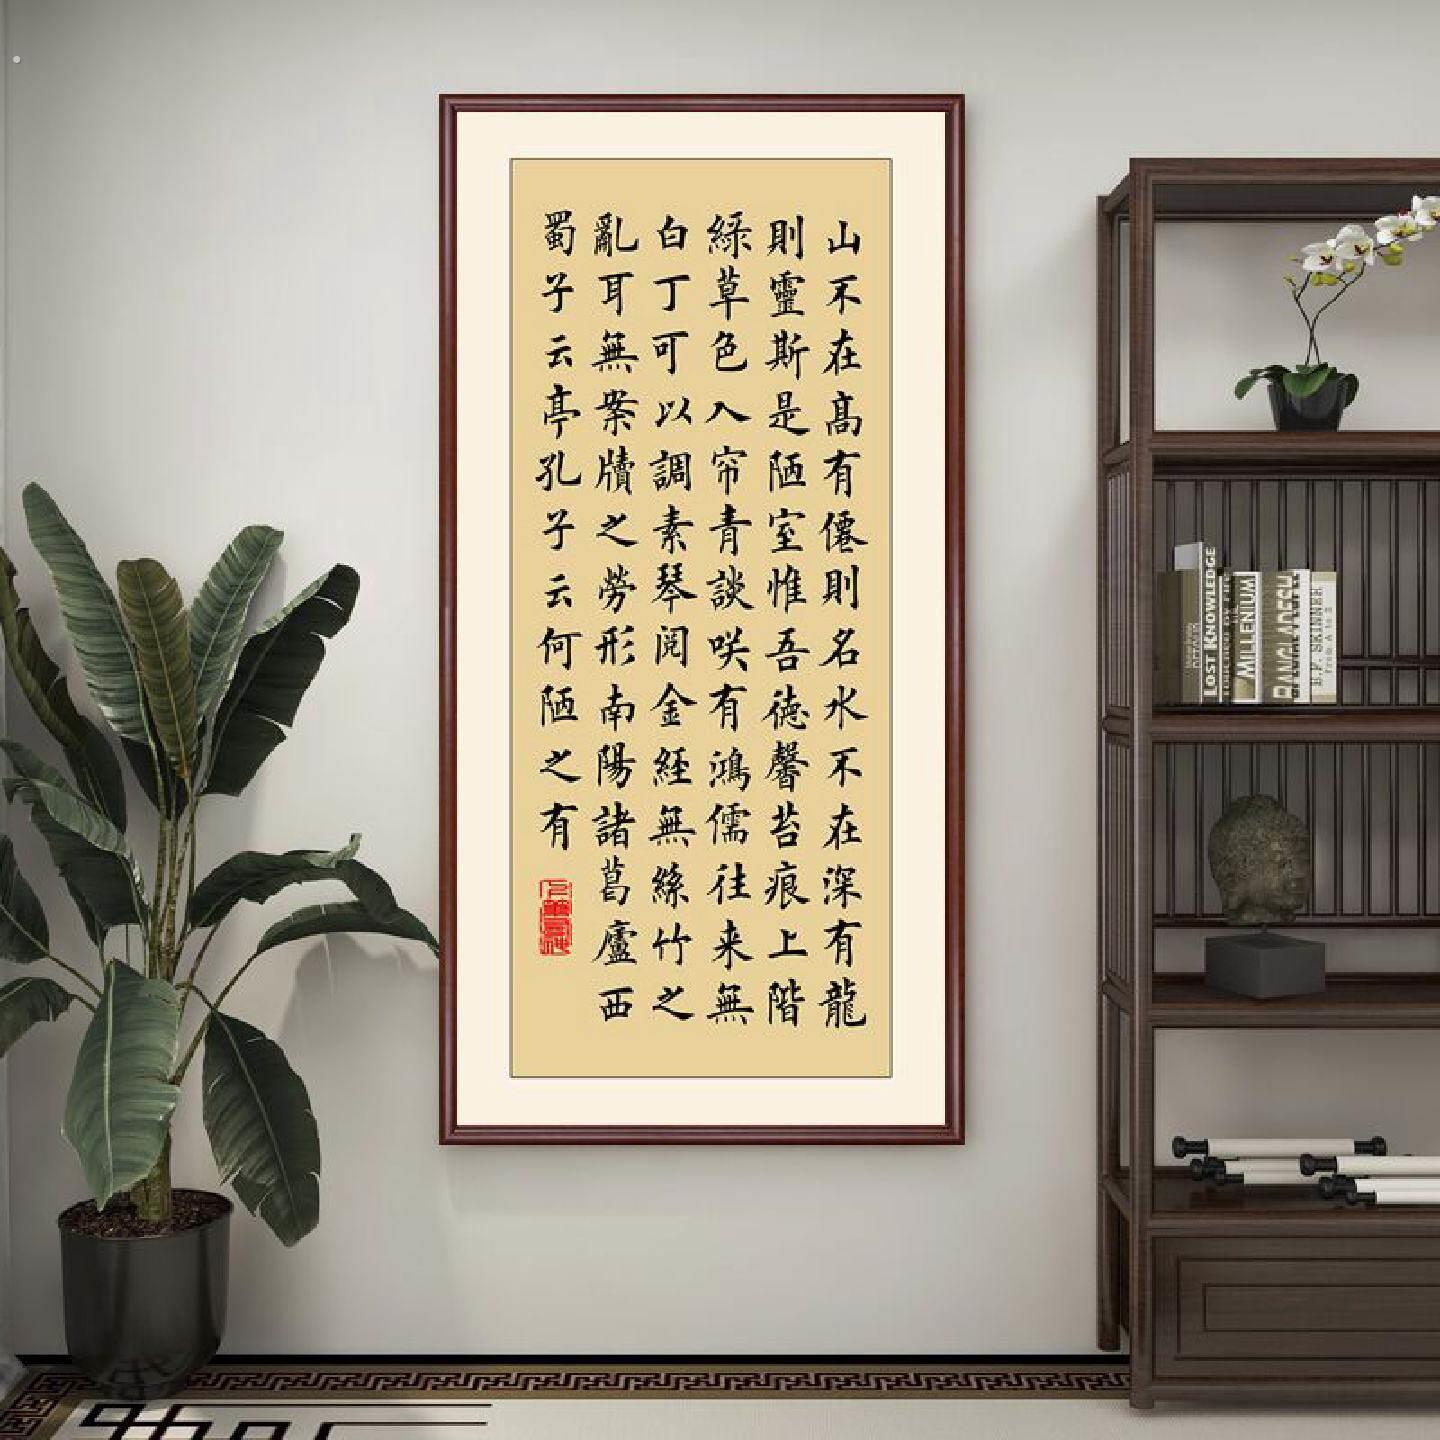 山不在高有僊則名水不在深有龍
則靈斯是陋室惟吾德馨苔痕上階
綠草色入帘青談咲有鴻儒往来無
白丁可以調素琴閱金經無絲竹之
亂耳無案牘之勞形南陽諸葛廬西
蜀子云亭孔子云何陋之有
LOST KNOWLEDGE
MILLENIUM
BANGLADESH
B.F. SKINNER
From A to Z